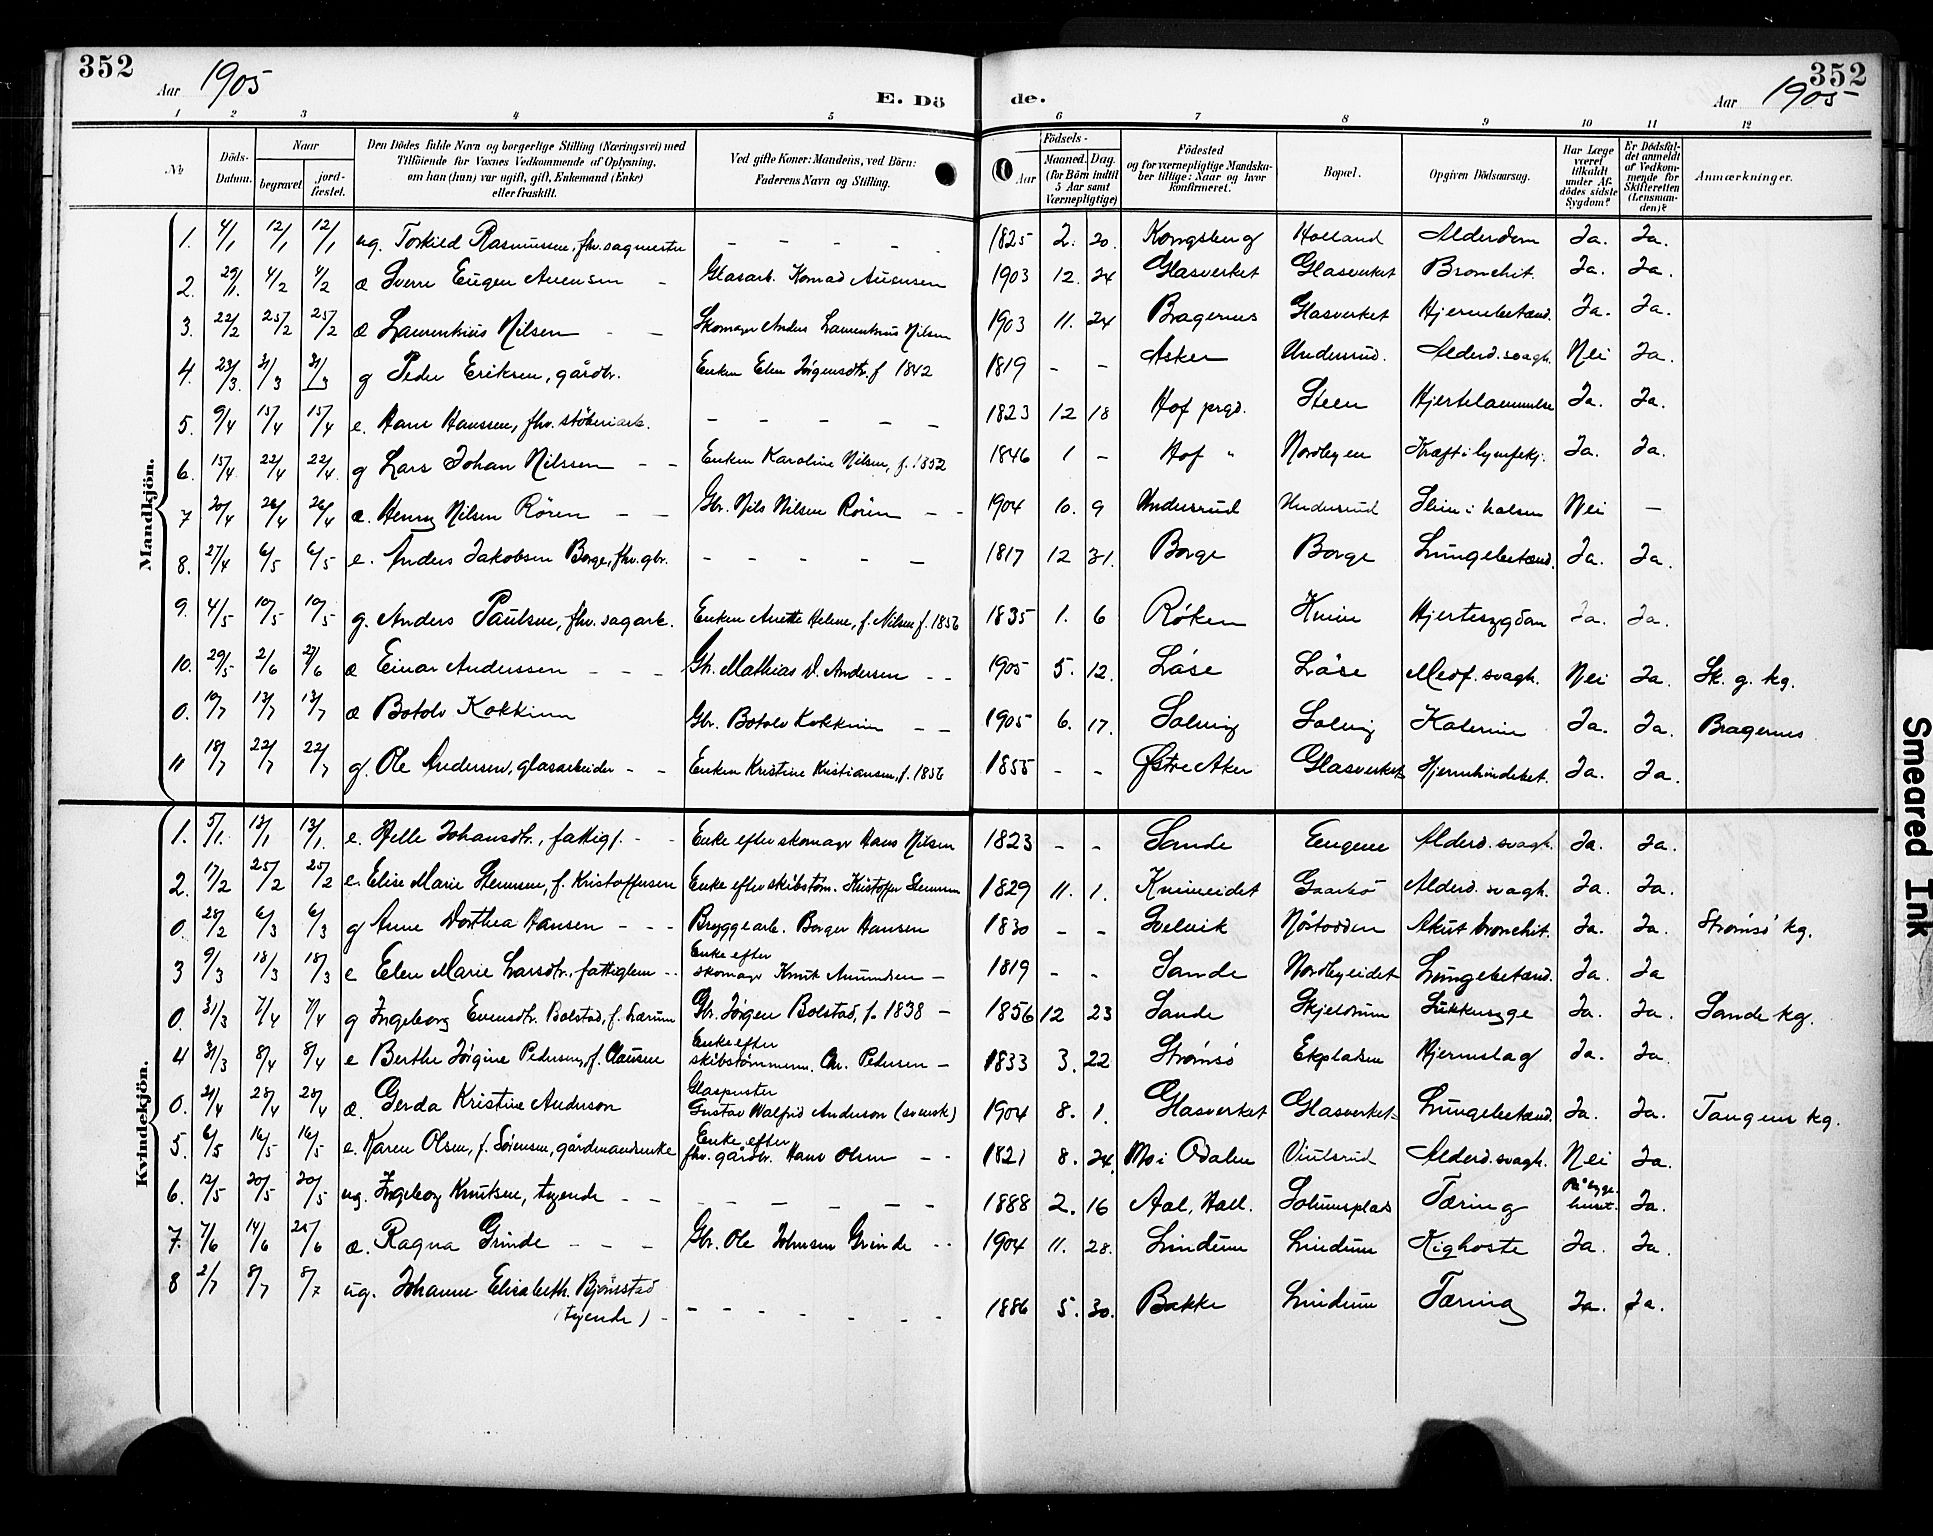 352
Aar 1905
E. Dö
de.
Aar 1905
352
1 2 3 4 5 6 7 8 9 10 11 12
No
Döds-Datum.
Naar
begravet
jord-fæstet.
Den Dödes fulde Navn og borgerlige Stilling (Næringsvei) med
Tilföiende for Voxnes Vedkommende af Oplysning,
om han (hun) var ugift, gift, Enkemand (Enke)
eller fraskilt.
Ved gifte Koner: Mandens, ved Börn:
Faderens Navn og Stilling.
Födsels-
Aar
Maaned. Dag.
(for Börn indtil
5 Aar samt
Værnepligtige)
Födested
og for værnepligtige Mandska-
ber tillige: Naar og hvor
konfirmeret.
Bopæl.
Opgiven Dödsaarsag.
Har Læge
været
tilkaldt
under Af-
dödes sidste
Sygdom?
Er Dödsfal-
det anmeldt
af Vedkom-
mende for
Skifteretten
(Lensman-
den)?
Anmærkninger.
Mandkjön.
1. 4/1 12/1 12/1 ug. Torkild Rasmussen, fhv. sagmester - - - - 1825 2. 20. Kongsberg Holland Alderdom Ja. Ja.
2. 29/1. 4/2 4/2 æ Sverre Eugen Auensen - Glasarb. Konrad Auensen 1903 12. 24 Glasverket Glasverket Bronchit. Ja. Ja.
3. 22/2 25/2 25/2 æ Laurenthius Nilsen - - Skomager Anders Laurenthius Nilsen 1903 11. 24 Bragernes Glasverket Hjernebetænd. Ja. Ja.
4. 23/3. 31/3 31/3 g Peder Eriksen, gårdbr. Enken Elen Jörgensdtr. f 1842 1819 - - Asker Undersrud. Alderd. svagh. Nei Ja.
5. 9/4 15/4 15/4 e. Hans Hanssen, fhv. støberiarb. - - - - - 1823 12 18 Hof prgd. Steen Hjertelammelse Ja. Ja.
6. 15/4 22/4 22/4. g Lars Johan Nilssen - - Enken Karoline Nilsen, f. 1852 1846 1 - Hof " Nordbyen Kræft i lymfekj. Ja. Ja.
7 20/4 26/4 26/4 æ. Henry Nilsen Rören - - Gbr. Nils Nilsen Rören - - 1904 10. 9 Undersrud Undersrud Slim i halsen Nei -
8. 27/4 6/5 6/5 e. Anders Jakobsen Borge, fhv. gbr. - - - - - 1817 12 31. Borge Borge Lungebetænd. Ja. Ja.
9. 4/5 10/5 10/5 g. Anders Paulsen, fhv. sagarb. Enken Anette Helene, f. Nilsen f. 1856 1835 1. 6 Røken Knive Hjertesygdom Ja. Ja.
10. 29/5 2/6 27/6 æ Einar Anderssen - - - Gbr. Mathias D. Andersen - - 1905 5. 12. Låse Låse Medf. svagh. Nei Ja. Sk. g. kg.
0. 10/7 13/7 13/7 æ Botolv Kokkinn Gbr. Botolv Kokkinn - - 1905 6. 17. Solvig Solvig Kolerine Ja. Ja. Bragernes
11 18/7 22/7 22/7 g. Ole Andersen, glasarbeider - - Enken Kristine Kristiansen, f. 1856 1855 - - Østre Aker Glasverket Hjernehindebet. Ja. Ja.
Kvindekjön.
1. 5/1. 13/1 13/1. e. Helle Johansdtr., fattigl. - - Enke efter skomager Hans Nilsen 1823 - - Sande Engene Alderd. svagh. Ja. Ja.
2. 17/2 25/2 25/2 e. Elise Marie Stennsen, f. Kristoffersen Enke efter skibstøm. Kristoffer Stennsen 1829 11. 1. Kniveeidet Gaarbø Alderd. svagh. Ja. Ja.
0. 28/2 6/3 6/3 g Anne Dorthea Hansen - - - Bryggearb. Borger Hansen 1830 - - Svelvik Nöstodden Akut bronchit. Ja. Ja. Strømsø kg.
3 9/3 18/3 18/3 e Elen Marie Larsdtr., fattiglem - - Enke efter
skomager Knut Amundsen - 1819 - - Sande Nordbyeidet Lungebetænd. Ja. Ja
0. 31/3 7/4 7/4 g Ingeborg Evensdtr. Bolstad, f. Lærum Gbr. Jörgen Bolstad, f. 1838 - 1856 12 23 Sande Skjeldrum Sukkersyge Ja. Ja. Sande kg.
4 31/3 8/4 8/4 e Berthe Jörgine Pedersen, f. Clausen Enke efter
skibstømmerm. Chr. Pedersen - 1833 3. 22 Strømsø Ekpladsen Hjerneslag Ja. Ja.
0. 21/4 28/4 28/4 æ. Gerda Kristine Anderson Glaspuster
Gustav Walfrid Anderson (svensk) 1904 8. 1. Glasverket Glasverket Lungebetænd. Ja. Ja. Tangens kg.
5. 6/5 16/5 16/5 e. Karen Olsen, f. Sørensen, gårdmandsenke Enke efter
fhv. gårdbr. Hans Olsen - - 1821 8. 24. Mo i Odalen Vintsrud Alderd. svagh. Nei Ja.
6. 12/5 20/5 20/5 ug. Ingeborg Knutsen, tyende - - - - - - - 1888 2. 16 Aal, Hall. Solumsplads Tæring På syge-
huset. Ja.
7. 7/6 14/6 25/6 æ. Ragna Grinde - - - Gbr. Ole Johnsen Grinde - - 1904 11. 28. Lindum Lindum Kighoste Ja. Ja.
8 2/7 8/7 8/7 ug. Johanne Elisabeth Bjönstad
(tyende) - - - - - - - 1886 5. 30. Bakke Lindum Tæring Ja. Ja.
Smeared Ink